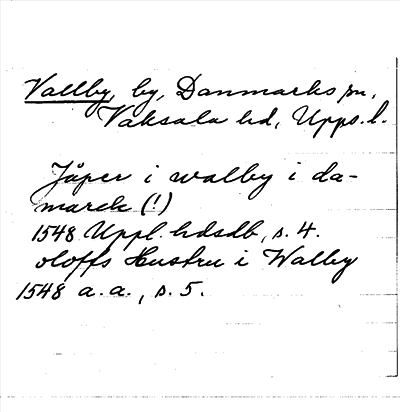 Vallby, by, Danmarks sn,
Vaksala hd, Upps. l.
Jåper i walby i da-
marck (!)
1548 Uppl. hdsdb, s. 4.
oloffs Hustru i Walby
1548 a. a., s. 5.